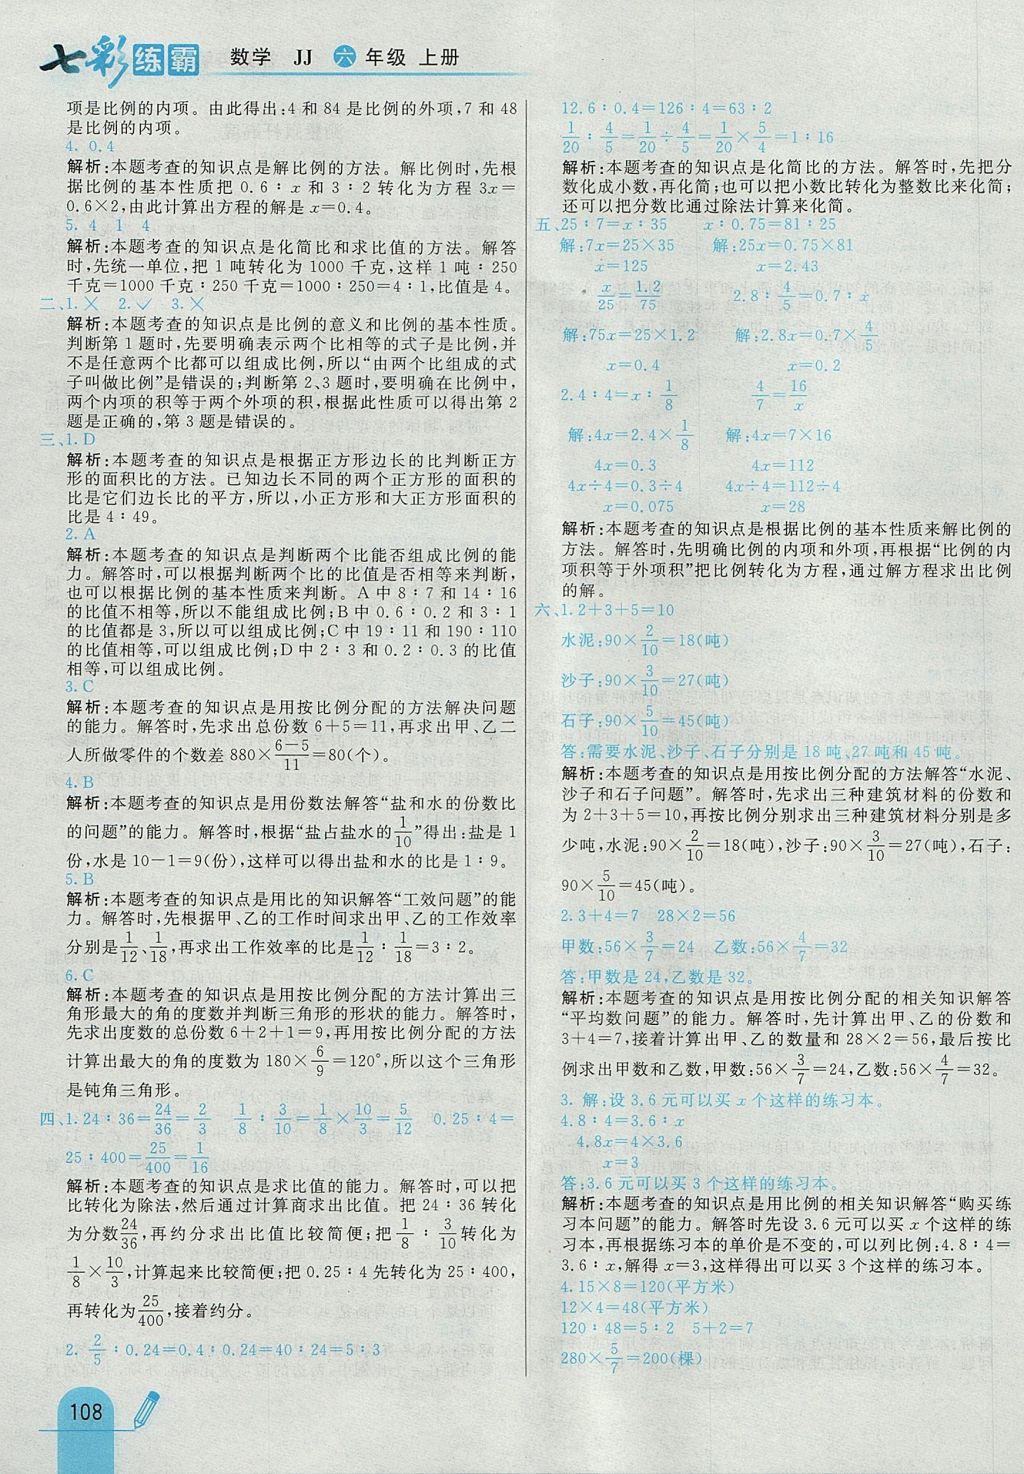 七彩练霸 数学 JJ 六年级 上册
项是比例的内项。由此得出:4 和 84 是比例的外项,7 和 48
是比例的内项。
4. 0.4
解析:本题考查的知识点是解比例的方法。解比例时,先根
据比例的基本性质把 0.6∶x 和 3∶2 转化为方程 3x=
0.6×2,由此计算出方程的解是 x=0.4。
5. 4 1 4
解析:本题考查的知识点是化简比和求比值的方法。解答
时,先统一单位,把 1 吨转化为 1000 千克,这样 1 吨∶250
千克=1000 千克∶250 千克=1000∶250=4∶1,比值是 4。
二、1.× 2.✓ 3.×
解析:本题考查的知识点是比例的意义和比例的基本性质。
判断第 1 题时,先要明确表示两个比相等的式子是比例,并
不是任意两个比都可以组成比例,所以“由两个比组成的式
子叫做比例”是错误的;判断第 2、3 题时,要明确在比例中,
两个内项的积等于两个外项的积,根据此性质可以得出第 2
题是正确的,第 3 题是错误的。
三、1. D
解析:本题考查的知识点是根据正方形边长的比判断正方
形的面积比的方法。已知边长不同的两个正方形的面积的
比是它们边长比的平方,所以,小正方形和大正方形面积的
比是 4∶49。
2. A
解析:本题考查的知识点是判断两个比能否组成比例的能
力。解答时,可以根据判断两个比的比值是否相等来判断,
也可以根据比例的基本性质来判断。A 中 8∶7 和 14∶16
的比值不相等,所以不能组成比例;B 中 0.6∶0.2 和 3∶1
的比值都是 3,所以可以组成比例;C 中 19∶11 和 190∶110
的比值相等,可以组成比例;D 中 2∶3 和 0.2∶0.3 的比值
相等,可以组成比例。
3. C
解析:本题考查的知识点是用按比例分配的方法解决问题
的能力。解答时,先求出总份数 6+5=11,再求出甲、乙二
人所做零件的个数差 880×(6-5)/11=80(个)。
4. B
解析:本题考查的知识点是用份数法解答“盐和水的份数比
的问题”的能力。解答时,根据“盐占盐水的1/10”得出:盐是 1
份,水是 10-1=9(份),这样可以得出盐和水的比是 1∶9。
5. B
解析:本题考查的知识点是用比的知识解答“工效问题”的能
力。解答时,先根据甲、乙的工作时间求出甲、乙的工作效率
分别是1/12、1/18,再求出工作效率的比是1/12∶1/18=3∶2。
6. C
解析:本题考查的知识点是用按比例分配的方法计算出三
角形最大的角的度数并判断三角形的形状的能力。解答时,
先求出度数的总份数 6+2+1=9,再用按比例分配的方法
计算出最大的角的度数为 180×6/9=120°,所以这个三角形
是钝角三角形。
四、1. 24∶36=24/36=2/3 1/8∶3/10=1/8×10/3=5/12 0.25∶4=
25∶400=25/400=1/16
解析:本题考查的知识点是求比值的能力。解答时,可以把
比转化为除法,然后通过计算商求出比值。把 24∶36 转化
为分数24/36,再约分求出比值比较简便;把1/8∶3/10转化为
1/8×10/3,计算起来比较简便;把 0.25∶4 先转化为 25∶400,
再转化为25/400,接着约分。
2. 2/5∶0.24=0.4∶0.24=40∶24=5∶3
12.6∶0.4=126∶4=63∶2
1/20∶4/5=1/20÷4/5=1/20×5/4=1∶16
解析:本题考查的知识点是化简比的方法。解答时,先把分
数化成小数,再化简;也可以把小数比转化为整数比来化简;
还可以把分数比通过除法计算来化简。
五、25∶7=x∶35 x∶0.75=81∶25
解:7x=25×35 解:25x=0.75×81
x=125 x=2.43
x/25=1.2/75 2.8∶4/5=0.7∶x
解:75x=25×1.2 解:2.8x=0.7×4/5
x=0.4 x=0.2
2.4∶4=x∶1/8 4/7=16/x
解:4x=2.4×1/8 解:4x=7×16
4x=0.3 4x=112
4x÷4=0.3÷4 4x÷4=112÷4
x=0.075 x=28
解析:本题考查的知识点是根据比例的基本性质来解比例的
方法。解答时,先明确比例的内项和外项,再根据“比例的内
项积等于外项积”把比例转化为方程,通过解方程求出比例
的解。
六、1. 2+3+5=10
水泥:90×2/10=18(吨)
沙子:90×3/10=27(吨)
石子:90×5/10=45(吨)
答:需要水泥、沙子、石子分别是 18 吨、27 吨和 45 吨。
解析:本题考查的知识点是用按比例分配的方法解答“水泥、
沙子和石子问题”。解答时,先求出三种建筑材料的份数和
为 2+3+5=10,再按比例分别求出三种建筑材料分别是多
少吨,水泥:90×2/10=18(吨),沙子:90×3/10=27(吨),石子:
90×5/10=45(吨)。
2. 3+4=7 28×2=56
甲数:56×3/7=24 乙数:56×4/7=32
答:甲数是 24,乙数是 32。
解析:本题考查的知识点是用按比例分配的相关知识解答
“平均数问题”的能力。解答时,先计算出甲、乙的份数和
3+4=7,接着计算出甲、乙的数量和 28×2=56,最后按比
例求出甲数和乙数,甲数:56×3/7=24,乙数:56×4/7=32。
3. 解:设 3.6 元可以买 x 个这样的练习本。
4.8∶4=3.6∶x
4.8x=4×3.6
x=3
答:3.6 元可以买 3 个这样的练习本。
解析:本题考查的知识点是用比例的相关知识解答“购买练
习本问题”的能力。解答时先设 3.6 元可以买 x 个这样的练
习本,再根据练习本的单价是不变的,可以列比例:4.8∶4=
3.6∶x,解得 x=3,这样得出可以买 3 个这样的练习本。
4. 15×8=120(平方米)
12×4=48(平方米)
120∶48=5∶2 5+2=7
280×5/7=200(棵)
108